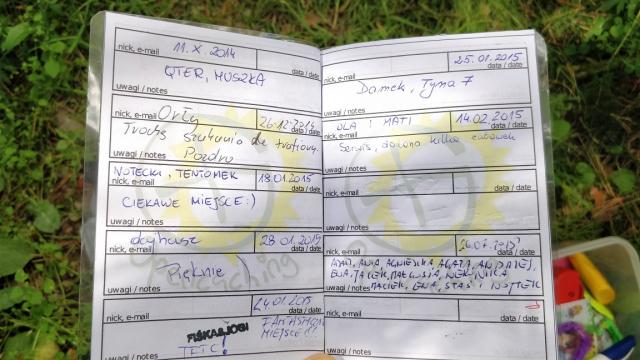 nick, e-mail 11. X. 2014 data / date
QTER, MUSZKA
uwagi / notes
nick, e-mail Orły 26-12-2014 data / date
Trochę szukania ale trafiony.
Pozdro
uwagi / notes
NOTECKI, TENTOMEK 18.01.2015
nick, e-mail data / date
CIEKAWE MIEJSCE :)
uwagi / notes
nick, e-mail 28 01 2015 data / date
Pięknie :)
uwagi / notes
24.01.2015
nick, e-mail data / date
MIEJSCE!
TFTC!
uwagi / notes
25.01.2015
nick, e-mail data / date
Damek, Tyna 7
uwagi / notes
OLA I MATI 14.02.2015
nick, e-mail data / date
Serwis, dorzuno kilka
uwagi / notes
nick, e-mail data / date
uwagi / notes
nick, e-mail data / date
ANIA, AGNIESZKA, AGATA, ANDRZEJ,
EWA, JACEK, MAŁGOSIA, WERONIKA
uwagi / notes MACIEK, EWA, STAŚ I WOJTEK
nick, e-mail data / date
uwagi / notes